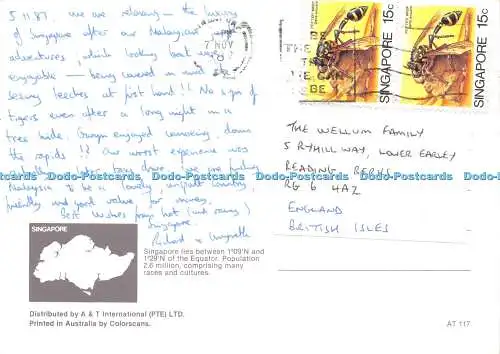 5.11.87. We are relaxing - the luxury
of Singapore after our Malaysian
adventures, which looking back were
enjoyable - being covered in mud &
seeing leeches at first hand!! No sign of
tigers even after a long night in a
tree hide. Gwyn enjoyed down
the rapids!! Our worst experience was
down. We are finding
Malaysia to be a lovely unspoilt country,
friendly and good value for money.
Best wishes from hot (and rainy)
Singapore.
Richard &
7 NOV
SINGAPORE 15c
SINGAPORE 15c
THE WELLUM FAMILY
5 RYHILL WAY, LOWER EARLEY
READING BERKS
RG6 4AZ
ENGLAND
BRITISH ISLES
Dodo-Postcards Dodo-Postcards Dodo-Postcards Dodo-Postcards Dodo-Postcards Dodo-Postcards
SINGAPORE
Singapore lies between 1°09'N and
1°29'N of the Equator. Population
2.6 million, comprising many
races and cultures.
Distributed by A & T International (PTE) LTD.
Printed in Australia by Colorscans.
AT 117